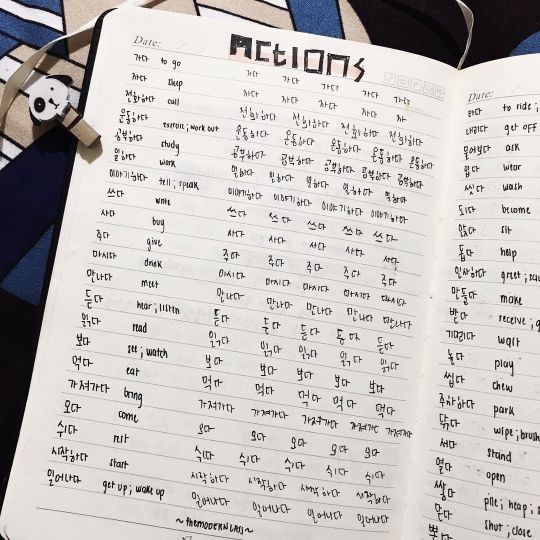 Date:
ACTIONS
가다 to go 가다 가다 가다 가다
자다 sleep 자다 자다 자다 자
전화하다 call 전화하다 전화하다 전화하다 전화하다
운동하다 exercise; work out 운동하다 운동하다 운동하다 운동하다
공부하다 study 공부하다 공부하다 공부하다 공부하다
일하다 work 일하다 일하다 일하다 일하다
이야기하다 tell; speak 이야기하다 이야기하다 이야기하다 이야기하다
쓰다 write 쓰다 쓰다 쓰다 쓰다 쓰다
사다 buy 사다 사다 사다 사다 사다
주다 give 주다 주다 주다 주다 주다
마시다 drink 마시다 마시다 마시다 마시다
만나다 meet 만나다 만나다 만나다 만나다 만나다
듣다 hear; listen 듣다 듣다 듣다 듣다 듣다
읽다 read 읽다 읽다 읽다 읽다 읽다
보다 see; watch 보다 보다 보다 보다 보다
먹다 eat 먹다 먹다 먹다 먹다 먹다
가져가다 bring 가져가다 가져가다 가져가다 가져가다 가져가다
오다 come 오다 오다 오다 오다 오다
쉬다 rest 쉬다 쉬다 쉬다 쉬다 쉬다
시작하다 start 시작하다 시작하다 시작하다 시작하다
일어나다 get up; wake up 일어나다 일어나다 일어나다 일어나다
~themodernlass~
Date:
타다 to ride;
내리다 get off
물어보다 ask
입다 wear
씻다 wash
되다 become
앉다 sit
돕다 help
인사하다 greet;
만들다 make
받다 receive;
기다리다 wait
놀다 play
씹다 chew
주차하다 park
닦다 wipe; brush
서다 stand
열다 open
쌓다 pile; heap;
닫다 shut; close